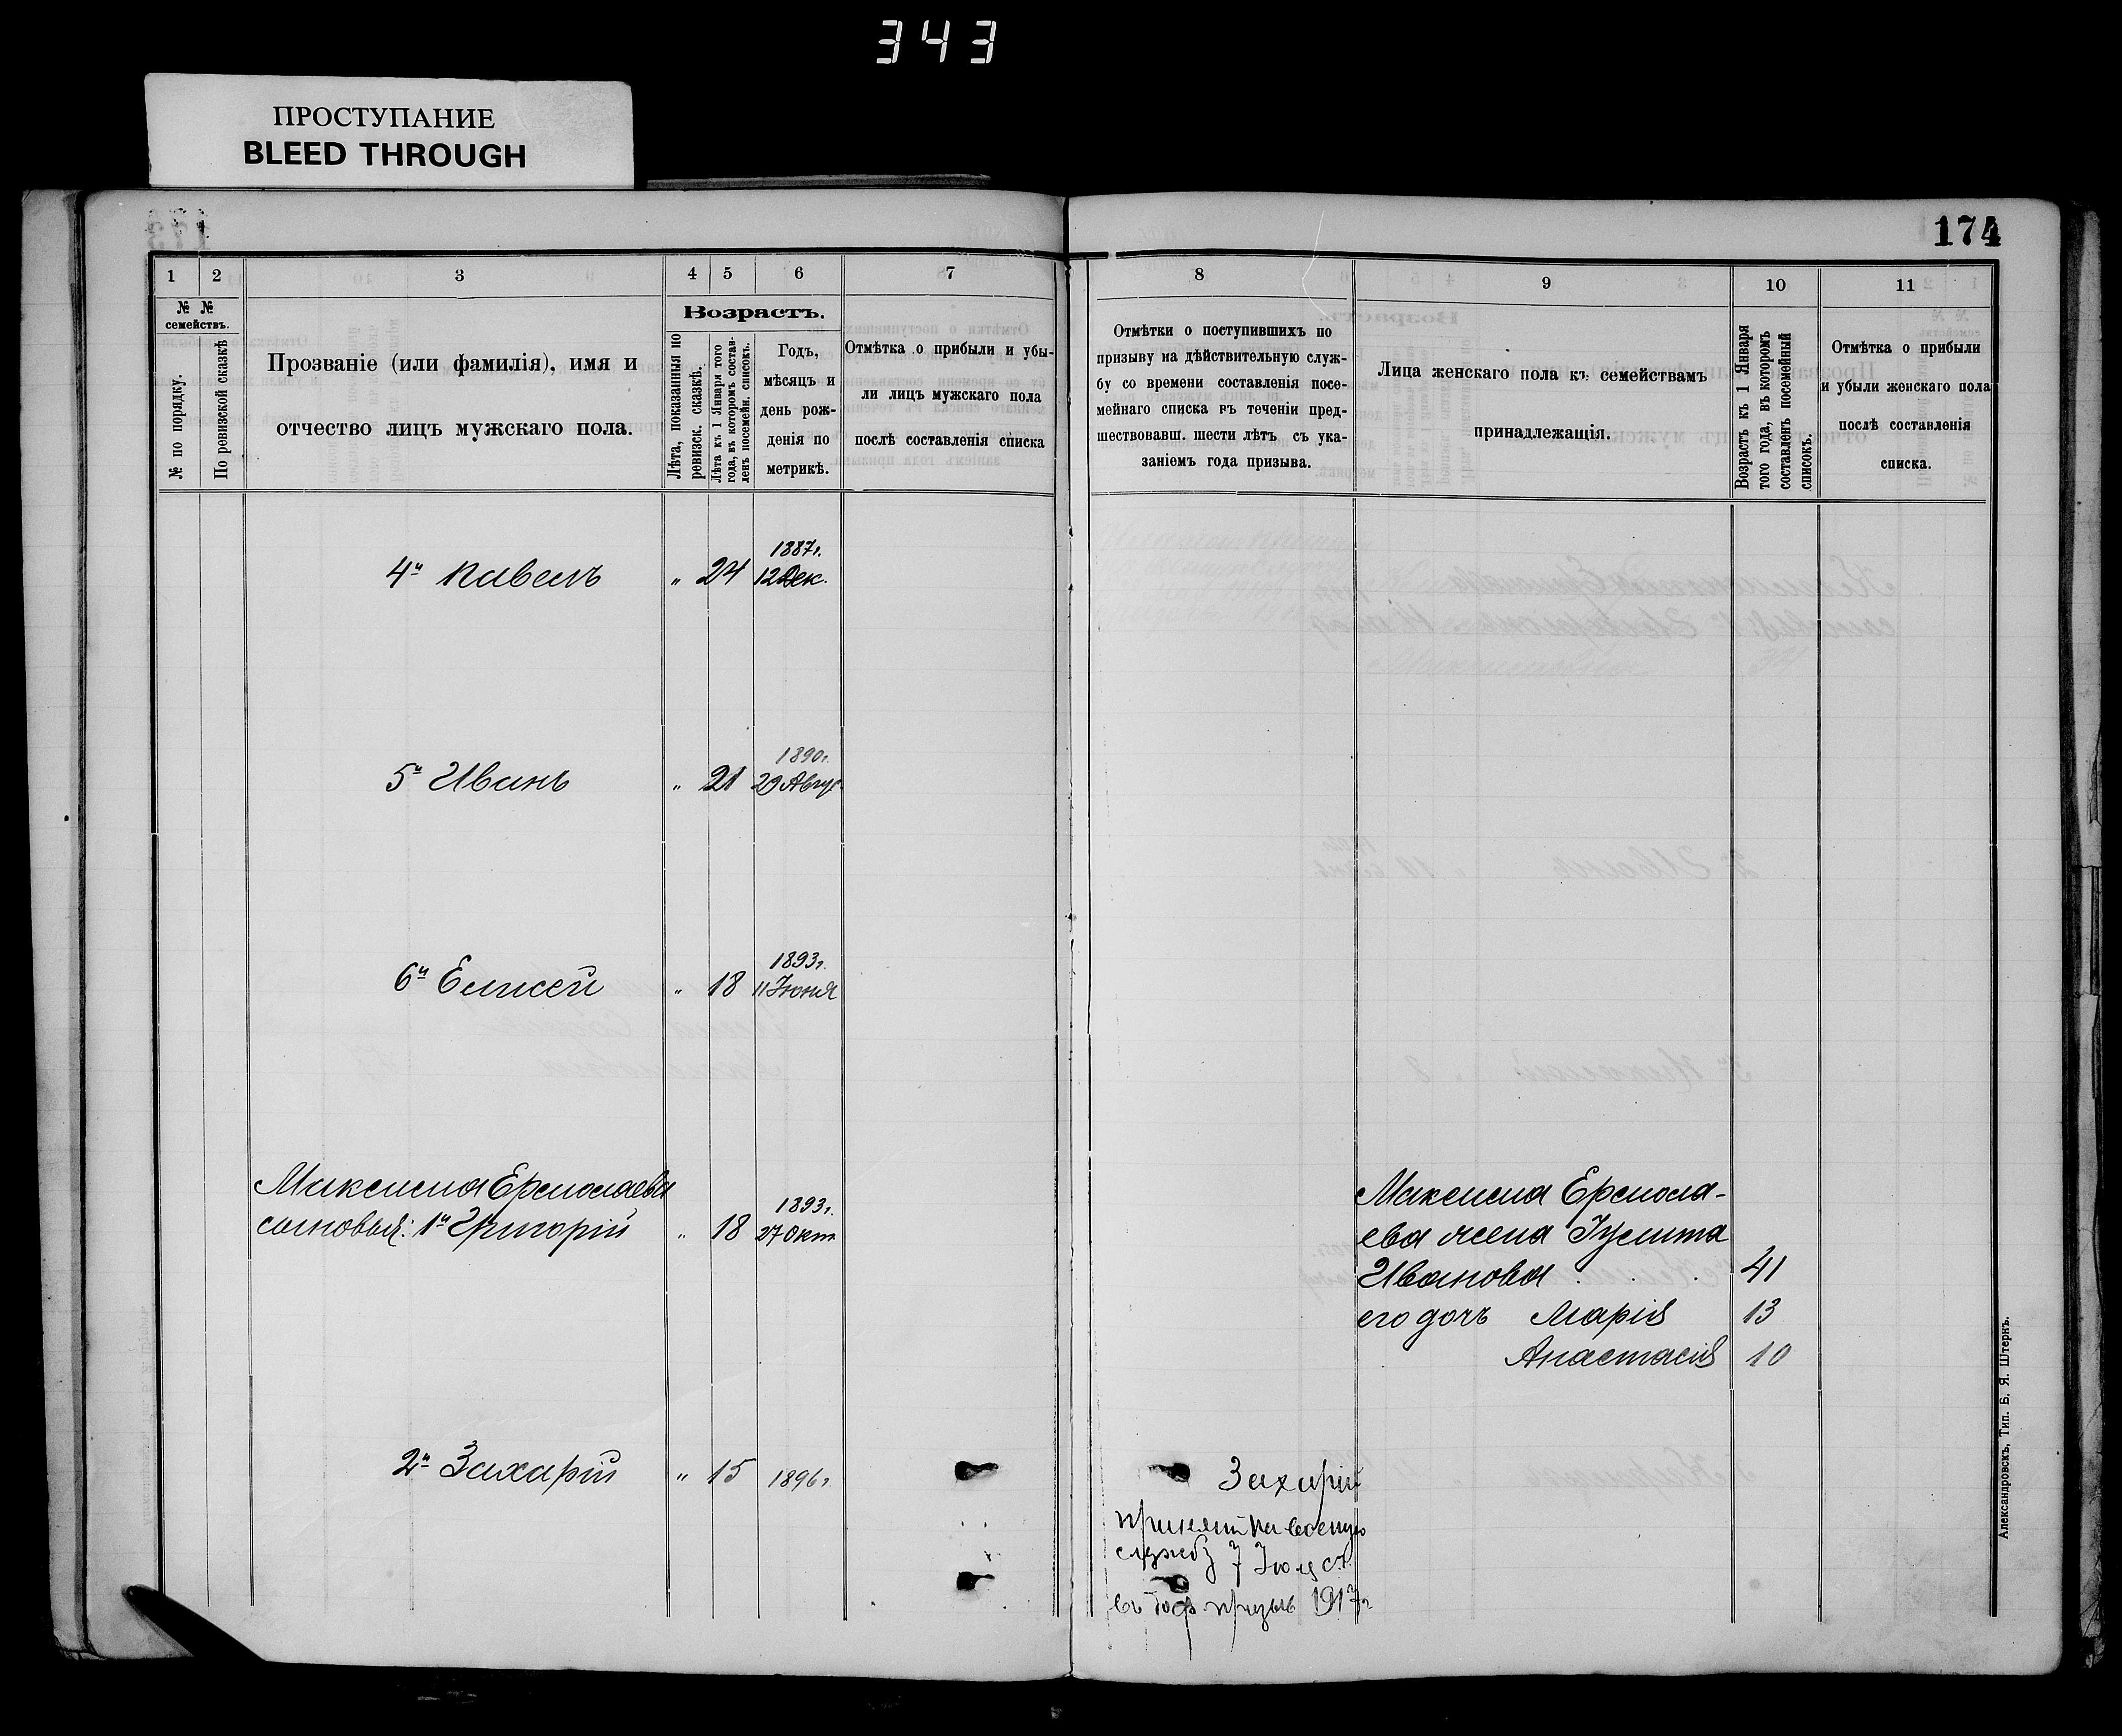 343
ПРОСТУПАНИЕ
BLEED THROUGH
174
1 2 3 4 5 6 7
№ № семействъ.
№ по порядку.
По ревизской сказкѣ
Прозваніе (или фамилія), имя и
отчество лицъ мужскаго пола.
Возрастъ.
Лѣта, показанныя по
ревизск. сказкѣ.
Лѣта къ 1 Января того
года, въ которомъ состав-
ленъ посемейн. списокъ.
Годъ,
мѣсяцъ и
день рож-
денія по
метрикѣ.
Отмѣтка о прибыли и убы-
ли лицъ мужскаго пола
послѣ составленія списка
4й Павелъ „ 24 1887г.
12 Дек.
5й Иванъ „ 21 1890г.
29 Авгус
6й Елисей „ 18 1893г.
11 Іюня
Максима Ермолаева
сыновья: 1й Григорій „ 18 1893г.
27 Окт
2й Захарій „ 15 1896г
8 9 10 11
Отмѣтки о поступившихъ по
призыву на дѣйствительную служ-
бу со времени составленія посе-
мейнаго списка въ теченіи пред-
шествовавш. шести лѣтъ съ ука-
заніемъ года призыва.
Лица женскаго пола къ семействамъ
принадлежащія.
Возрастъ къ 1 Января
того года, въ которомъ
составленъ посемейный
списокъ.
Отмѣтка о прибыли
и убыли женскаго пола
послѣ составленія
списка.
Максима Ермола-
ева жена Іулита
Иванова . . . 41
его дочь Марія 13
Анастасія 10
Захарій
принятъ на военную
службу 7
въ призывъ 1917г
Александровскъ, Тип. Б. Я. Штернъ.